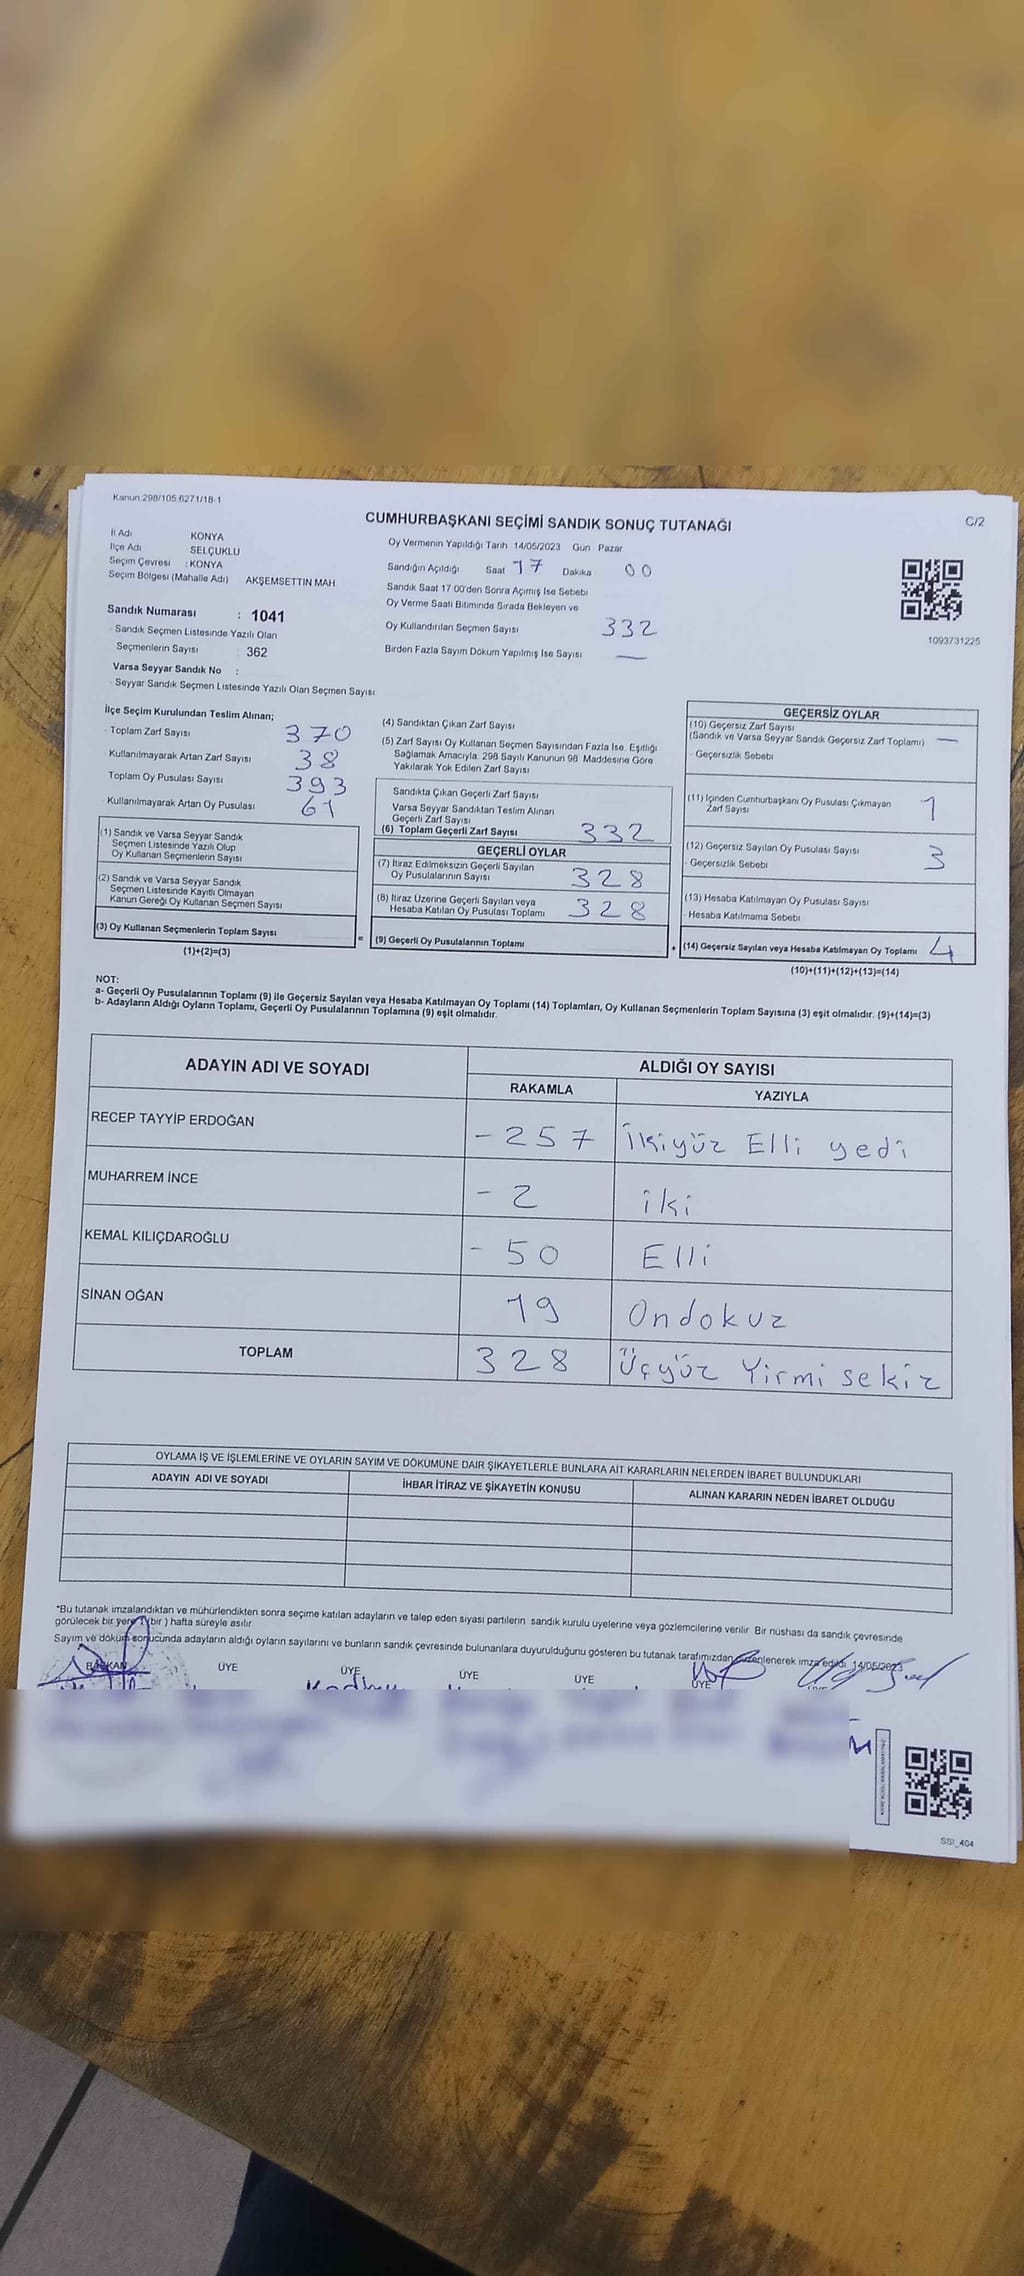 Kanun:298/105 6271/18-1
CUMHURBAŞKANI SEÇİMİ SANDIK SONUÇ TUTANAĞI
C/2
İl Adı KONYA
İlçe Adı SELÇUKLU
Seçim Çevresi : KONYA
Seçim Bölgesi (Mahalle Adı) AKŞEMSETTIN MAH
Sandık Numarası : 1041
Sandık Seçmen Listesinde Yazılı Olan
Seçmenlerin Sayısı : 362
Varsa Seyyar Sandık No :
Seyyar Sandık Seçmen Listesinde Yazılı Olan Seçmen Sayısı
Oy Vermenin Yapıldığı Tarih 14/05/2023 Gun Pazar
Sandığın Açıldığı Saat 17 Dakika 00
Sandık Saat 17 00'den Sonra Açımış İse Sebebi
Oy Verme Saati Bitiminde Sırada Bekleyen ve
Oy Kullandırılan Seçmen Sayısı 332
Birden Fazla Sayım Dokum Yapılmış İse Sayısı —
1093731225
İlçe Seçim Kurulundan Teslim Alınan;
Toplam Zarf Sayısı 370
Kullanılmayarak Artan Zarf Sayısı 38
Toplam Oy Pusulası Sayısı 393
Kullanılmayarak Artan Oy Pusulası 61
(1) Sandık ve Varsa Seyyar Sandık
Seçmen Listesinde Yazılı Olup
Oy Kullanan Seçmenlerin Sayısı
(2) Sandık ve Varsa Seyyar Sandık
Seçmen Listesinde Kayıtlı Olmayan
Kanun Gereği Oy Kullanan Seçmen Sayısı
(3) Oy Kullanan Seçmenlerin Toplam Sayısı
(1)+(2)=(3)
=
(4) Sandıktan Çıkan Zarf Sayısı
(5) Zarf Sayısı Oy Kullanan Seçmen Sayısından Fazla İse, Eşitliği
Sağlamak Amacıyla, 298 Sayılı Kanunun 98 Maddesine Göre
Yakılarak Yok Edilen Zarf Sayısı
Sandıkta Çıkan Geçerli Zarf Sayısı
Varsa Seyyar Sandıktan Teslim Alınan
Geçerli Zarf Sayısı
(6) Toplam Geçerli Zarf Sayısı 332
GEÇERLİ OYLAR
(7) İtiraz Edilmeksizin Geçerli Sayılan
Oy Pusulalarının Sayısı 328
(8) İtiraz Üzerine Geçerli Sayılan veya
Hesaba Katılan Oy Pusulası Toplamı 328
(9) Geçerli Oy Pusulalarının Toplamı
+
GEÇERSİZ OYLAR
(10) Geçersiz Zarf Sayısı
(Sandık ve Varsa Seyyar Sandık Geçersiz Zarf Toplamı) —
Geçersizlik Sebebi
(11) İçinden Cumhurbaşkanı Oy Pusulası Çıkmayan
Zarf Sayısı 1
(12) Geçersiz Sayılan Oy Pusulası Sayısı 3
Geçersizlik Sebebi
(13) Hesaba Katılmayan Oy Pusulası Sayısı
Hesaba Katılmama Sebebi
(14) Geçersiz Sayılan veya Hesaba Katılmayan Oy Toplamı 4
(10)+(11)+(12)+(13)=(14)
NOT:
a- Geçerli Oy Pusulalarının Toplamı (9) ile Geçersiz Sayılan veya Hesaba Katılmayan Oy Toplamı (14) Toplamları, Oy Kullanan Seçmenlerin Toplam Sayısına (3) eşit olmalıdır. (9)+(14)=(3)
b- Adayların Aldığı Oyların Toplamı, Geçerli Oy Pusulalarının Toplamına (9) eşit olmalıdır.
ADAYIN ADI VE SOYADI
ALDIĞI OY SAYISI
RAKAMLA
YAZIYLA
RECEP TAYYİP ERDOĞAN - 257 İkiyüz Elli yedi
MUHARREM İNCE - 2 iki
KEMAL KILIÇDAROĞLU - 50 Elli
SİNAN OĞAN 19 Ondokuz
TOPLAM 328 Üçyüz Yirmi sekiz
OYLAMA İŞ VE İŞLEMLERİNE VE OYLARIN SAYIM VE DÖKÜMÜNE DAİR ŞİKAYETLERLE BUNLARA AİT KARARLARIN NELERDEN İBARET BULUNDUKLARI
ADAYIN ADI VE SOYADI
İHBAR İTİRAZ VE ŞİKAYETİN KONUSU
ALINAN KARARIN NEDEN İBARET OLDUĞU
*Bu tutanak imzalandıktan ve mühürlendikten sonra seçime katılan adayların ve talep eden siyasi partilerin sandık kurulu üyelerine veya gözlemcilerine verilir Bir nüshası da sandık çevresinde
görülecek bir yere 1 (bir ) hafta süreyle asılır
Sayım ve döküm sonucunda adayların aldığı oyların sayılarını ve bunların sandık çevresinde bulunanlara duyurulduğunu gösteren bu tutanak tarafımızdan düzenlenerek imza edildi 14/05/2023
BAŞKAN ÜYE ÜYE ÜYE ÜYE ÜYE ÜYE
SSI_404